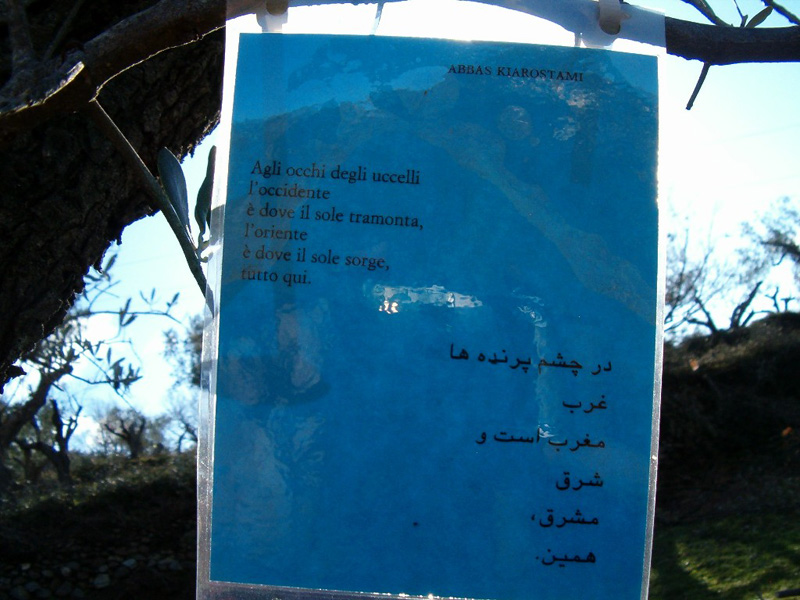 ABBAS KIAROSTAMI
Agli occhi degli uccelli
l'occidente
è dove il sole tramonta,
l'oriente
è dove il sole sorge,
tutto qui.
در چشم پرنده ها
غرب
مغرب است و
شرق
مشرق،
همین.